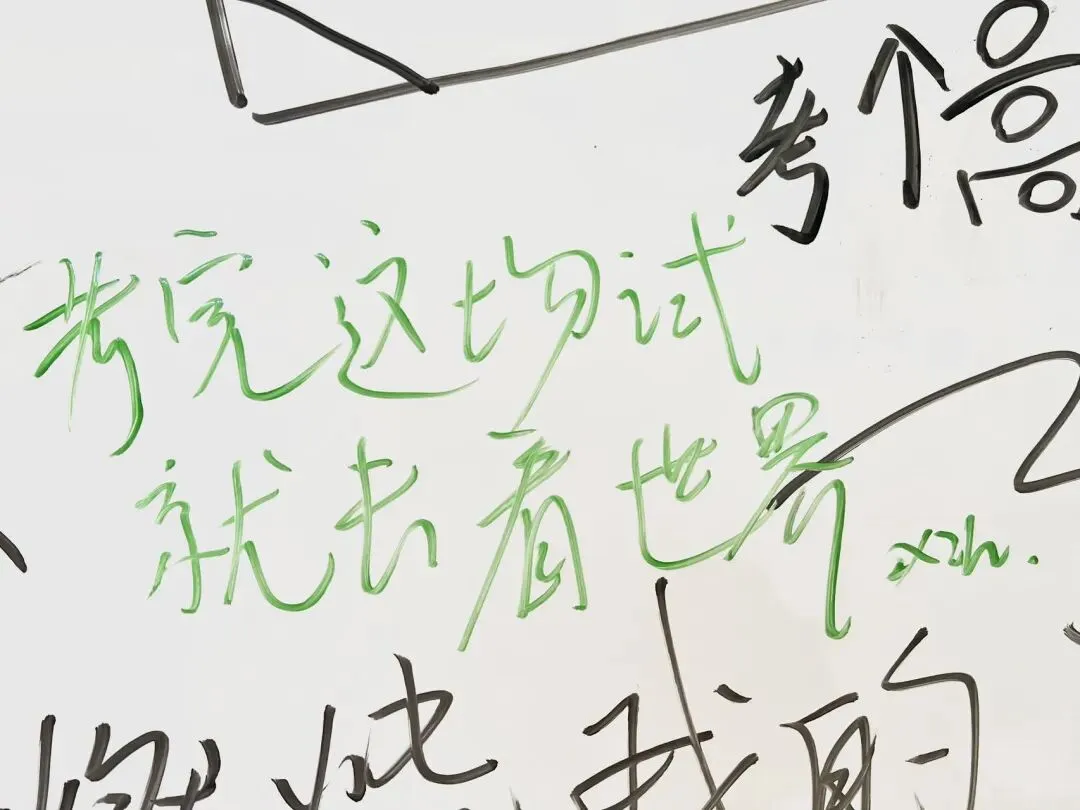 考个高
考完这场试
就去看世界
xzh.
燃烧我的